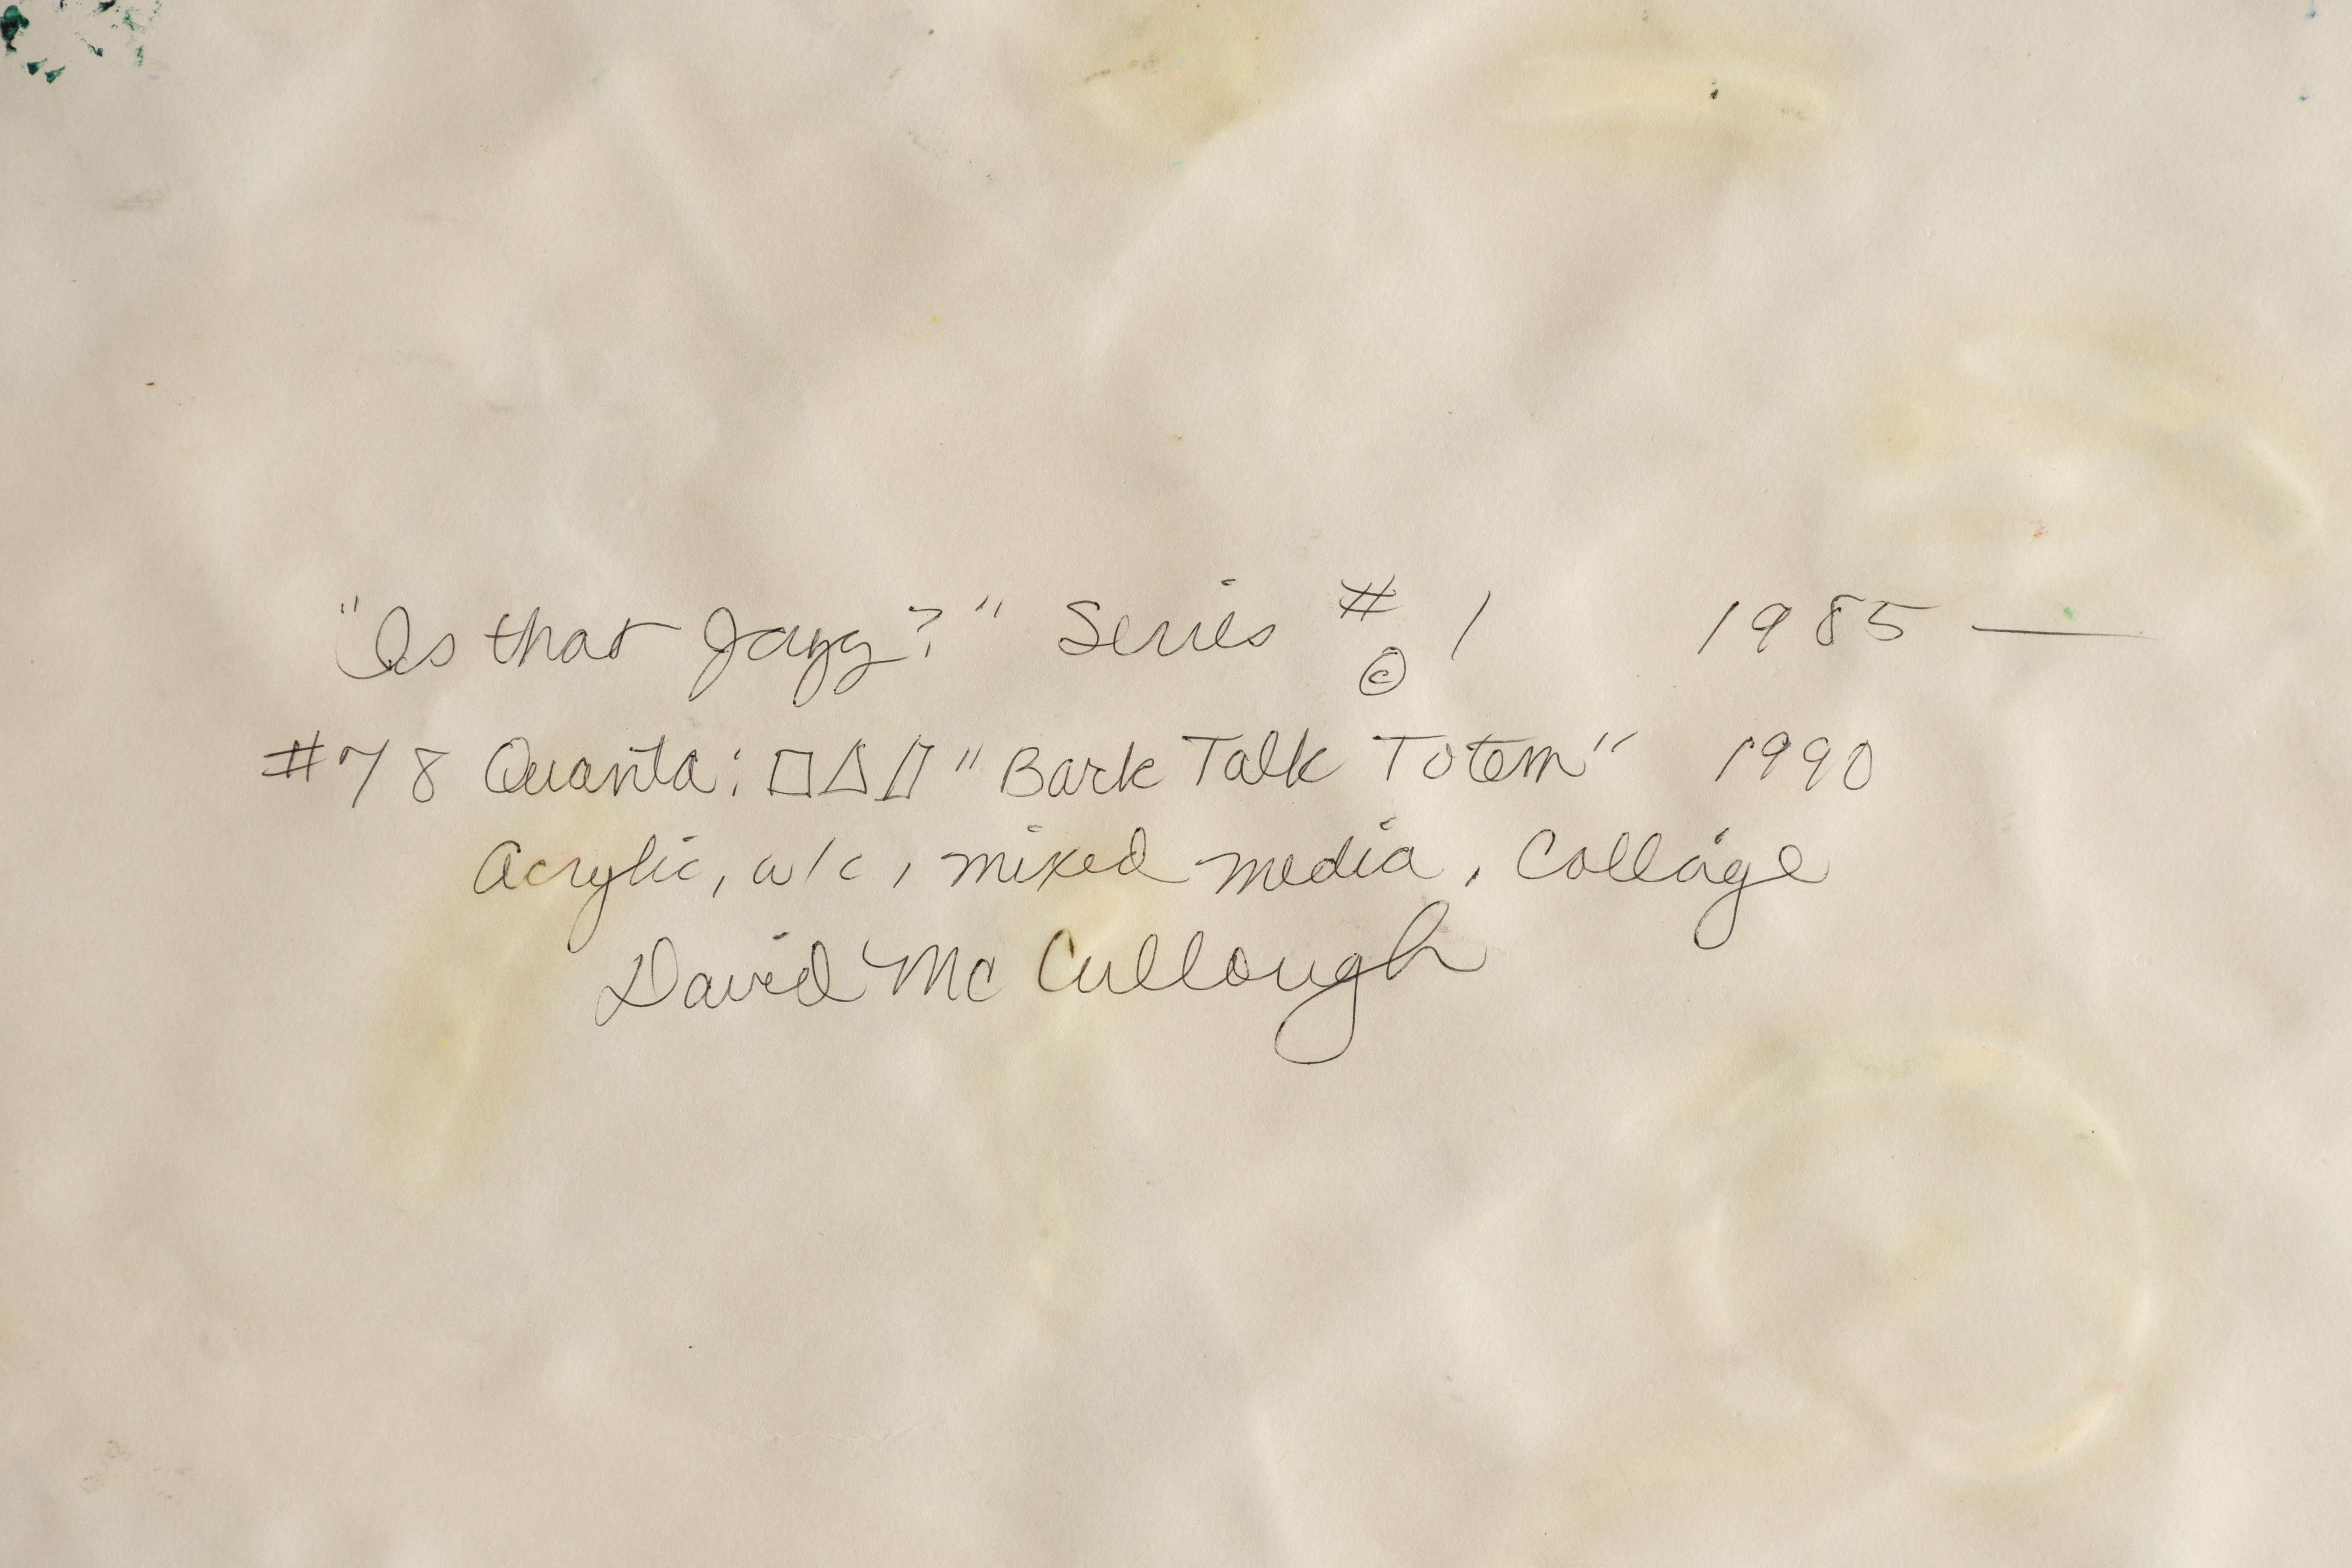 "Is that Jazz?" Series # 1 1985 —
©
#78 Quanta: □△▯ "Bark Talk Totem" 1990
Acrylic, w/c, mixed media, Collage
David McCullough